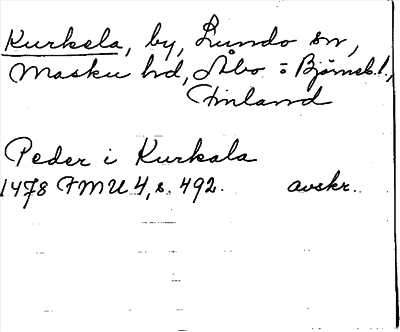 Kurkela, by, Lundo sn,
Masku hd, Åbo = Björneb.l.,
Finland
Peder i Kurkala
1478 FMU 4, s. 492. avskr.